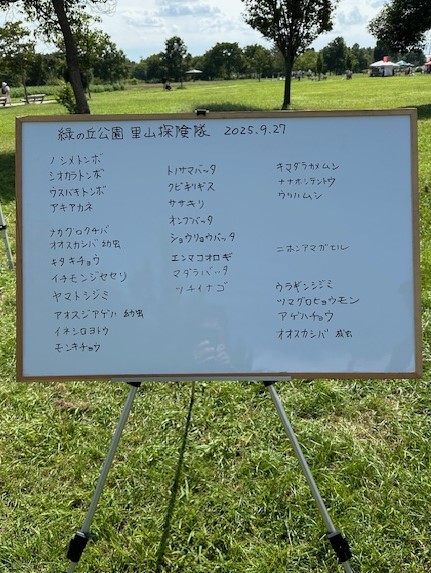 緑の丘公園 里山探険隊 2025.9.27
ノシメトンボ
シオカラトンボ
ウスバキトンボ
アキアカネ
ナカグロクチバ
オオスカシバ 幼虫
キタキチョウ
イチモンジセセリ
ヤマトシジミ
アオスジアゲハ 幼虫
イネシロヨトウ
モンキチョウ
トノサマバッタ
クビキリギス
ササキリ
オンブバッタ
ショウリョウバッタ
エンマコオロギ
マダラバッタ
ツチイナゴ
キマダラカメムシ
ナナホシテントウ
ウリハムシ
ニホンアマガエル
ウラギンシジミ
ツマグロヒョウモン
アゲハチョウ
オオスカシバ 成虫